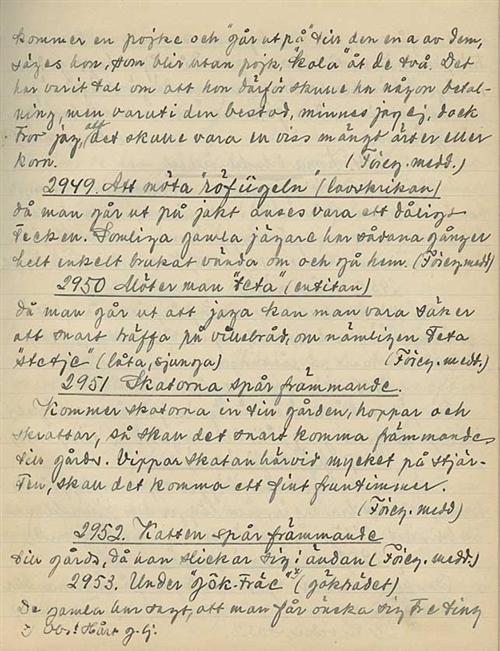 kommer en pojke och "går ut på" till den ena av dem,
säges hon, som blir utan pojk, "kola" åt de två. Det
har varit tal om att hon därför skulle ha någon betal-
ning, men varuti den bestod, minnes jag ej, dock
tror jag, att det skulle vara en viss mängd ärter eller
korn. (Föreg. medd.)
2949. Att möta "röfügeln" (lavskrikan)
då man går ut på jakt anses vara ett dåligt
tecken. Somliga gamla jägare har sådana gånger
helt enkelt brukat vända om och gå hem. (Föreg. medd)
2950 Möter man "teta" (entitan)
då man går ut att jaga kan man vara säker
att snart träffa på villebråd, om nämligen teta
"stetje" (låta, sjunga) (Föreg. medd.)
2951 Skatorna spår främmande.
Kommer skatorna in till gården, hoppar och
skrattar, så skall det snart komma främmande
till gårds. Vippar skatan härvid mycket på stjär-
ten, skall det komma ett fint fruntimmer.
(Föreg. medd)
2952. Katten spår främmande
till gårds, då han slickar sig i ändan (Föreg. medd.)
2953. Under "gök-träe" x) (gökträdet)
De gamla har sagt, att man får önska sig tre ting
x) Obs! Hårt g-lj.